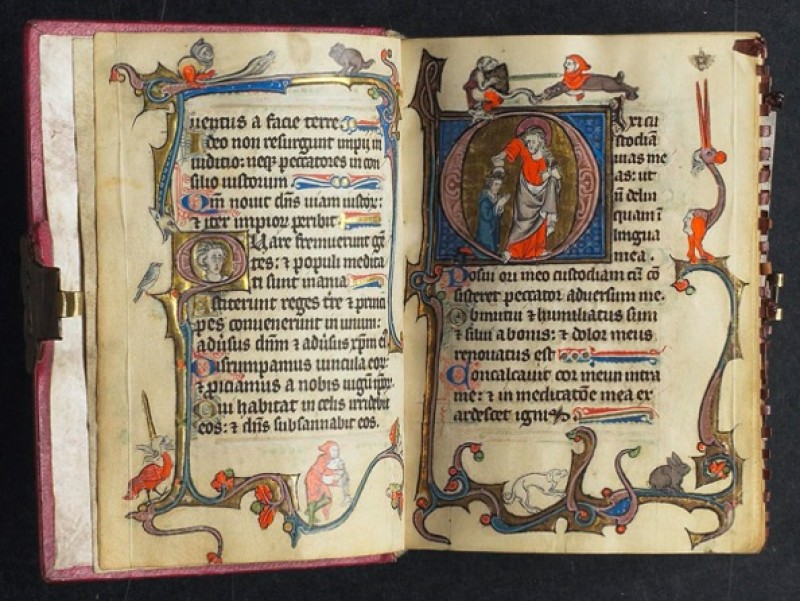 uentus a facie terre
Ideo non resurgunt impij in
iuditio: neqꝫ peccatores in con
silio iustorum.
Qm̄ nouit dn̄s uiam iustoꝝ:
⁊ iter impioꝝ peribit
Quare fremuerunt gē
tes: ⁊ populi medita
ti sunt inania
Astiterunt reges tr̄e ⁊ princi
pes conuenerunt in unum:
aduersus dn̄m ⁊ aduersus xp̄m eī
Disrumpamus uincula eoꝝ:
⁊ proiciamus a nobis iugū ip̄oꝝ
Qui habitat in celis irridebit
eos: ⁊ dn̄s subsannabit eos.
Dixi cu
stodiā
uias me
as: ut
nō delin
quam ī
lingua
mea.
Posui ori meo custodiam cū cō
sisteret peccator aduersum me.
Obmutui ⁊ humiliatus sum
⁊ silui a bonis: ⁊ dolor meus
renouatus est
Concalcauit cor meum intra
me: ⁊ in meditatōe mea ex
ardescet ignis